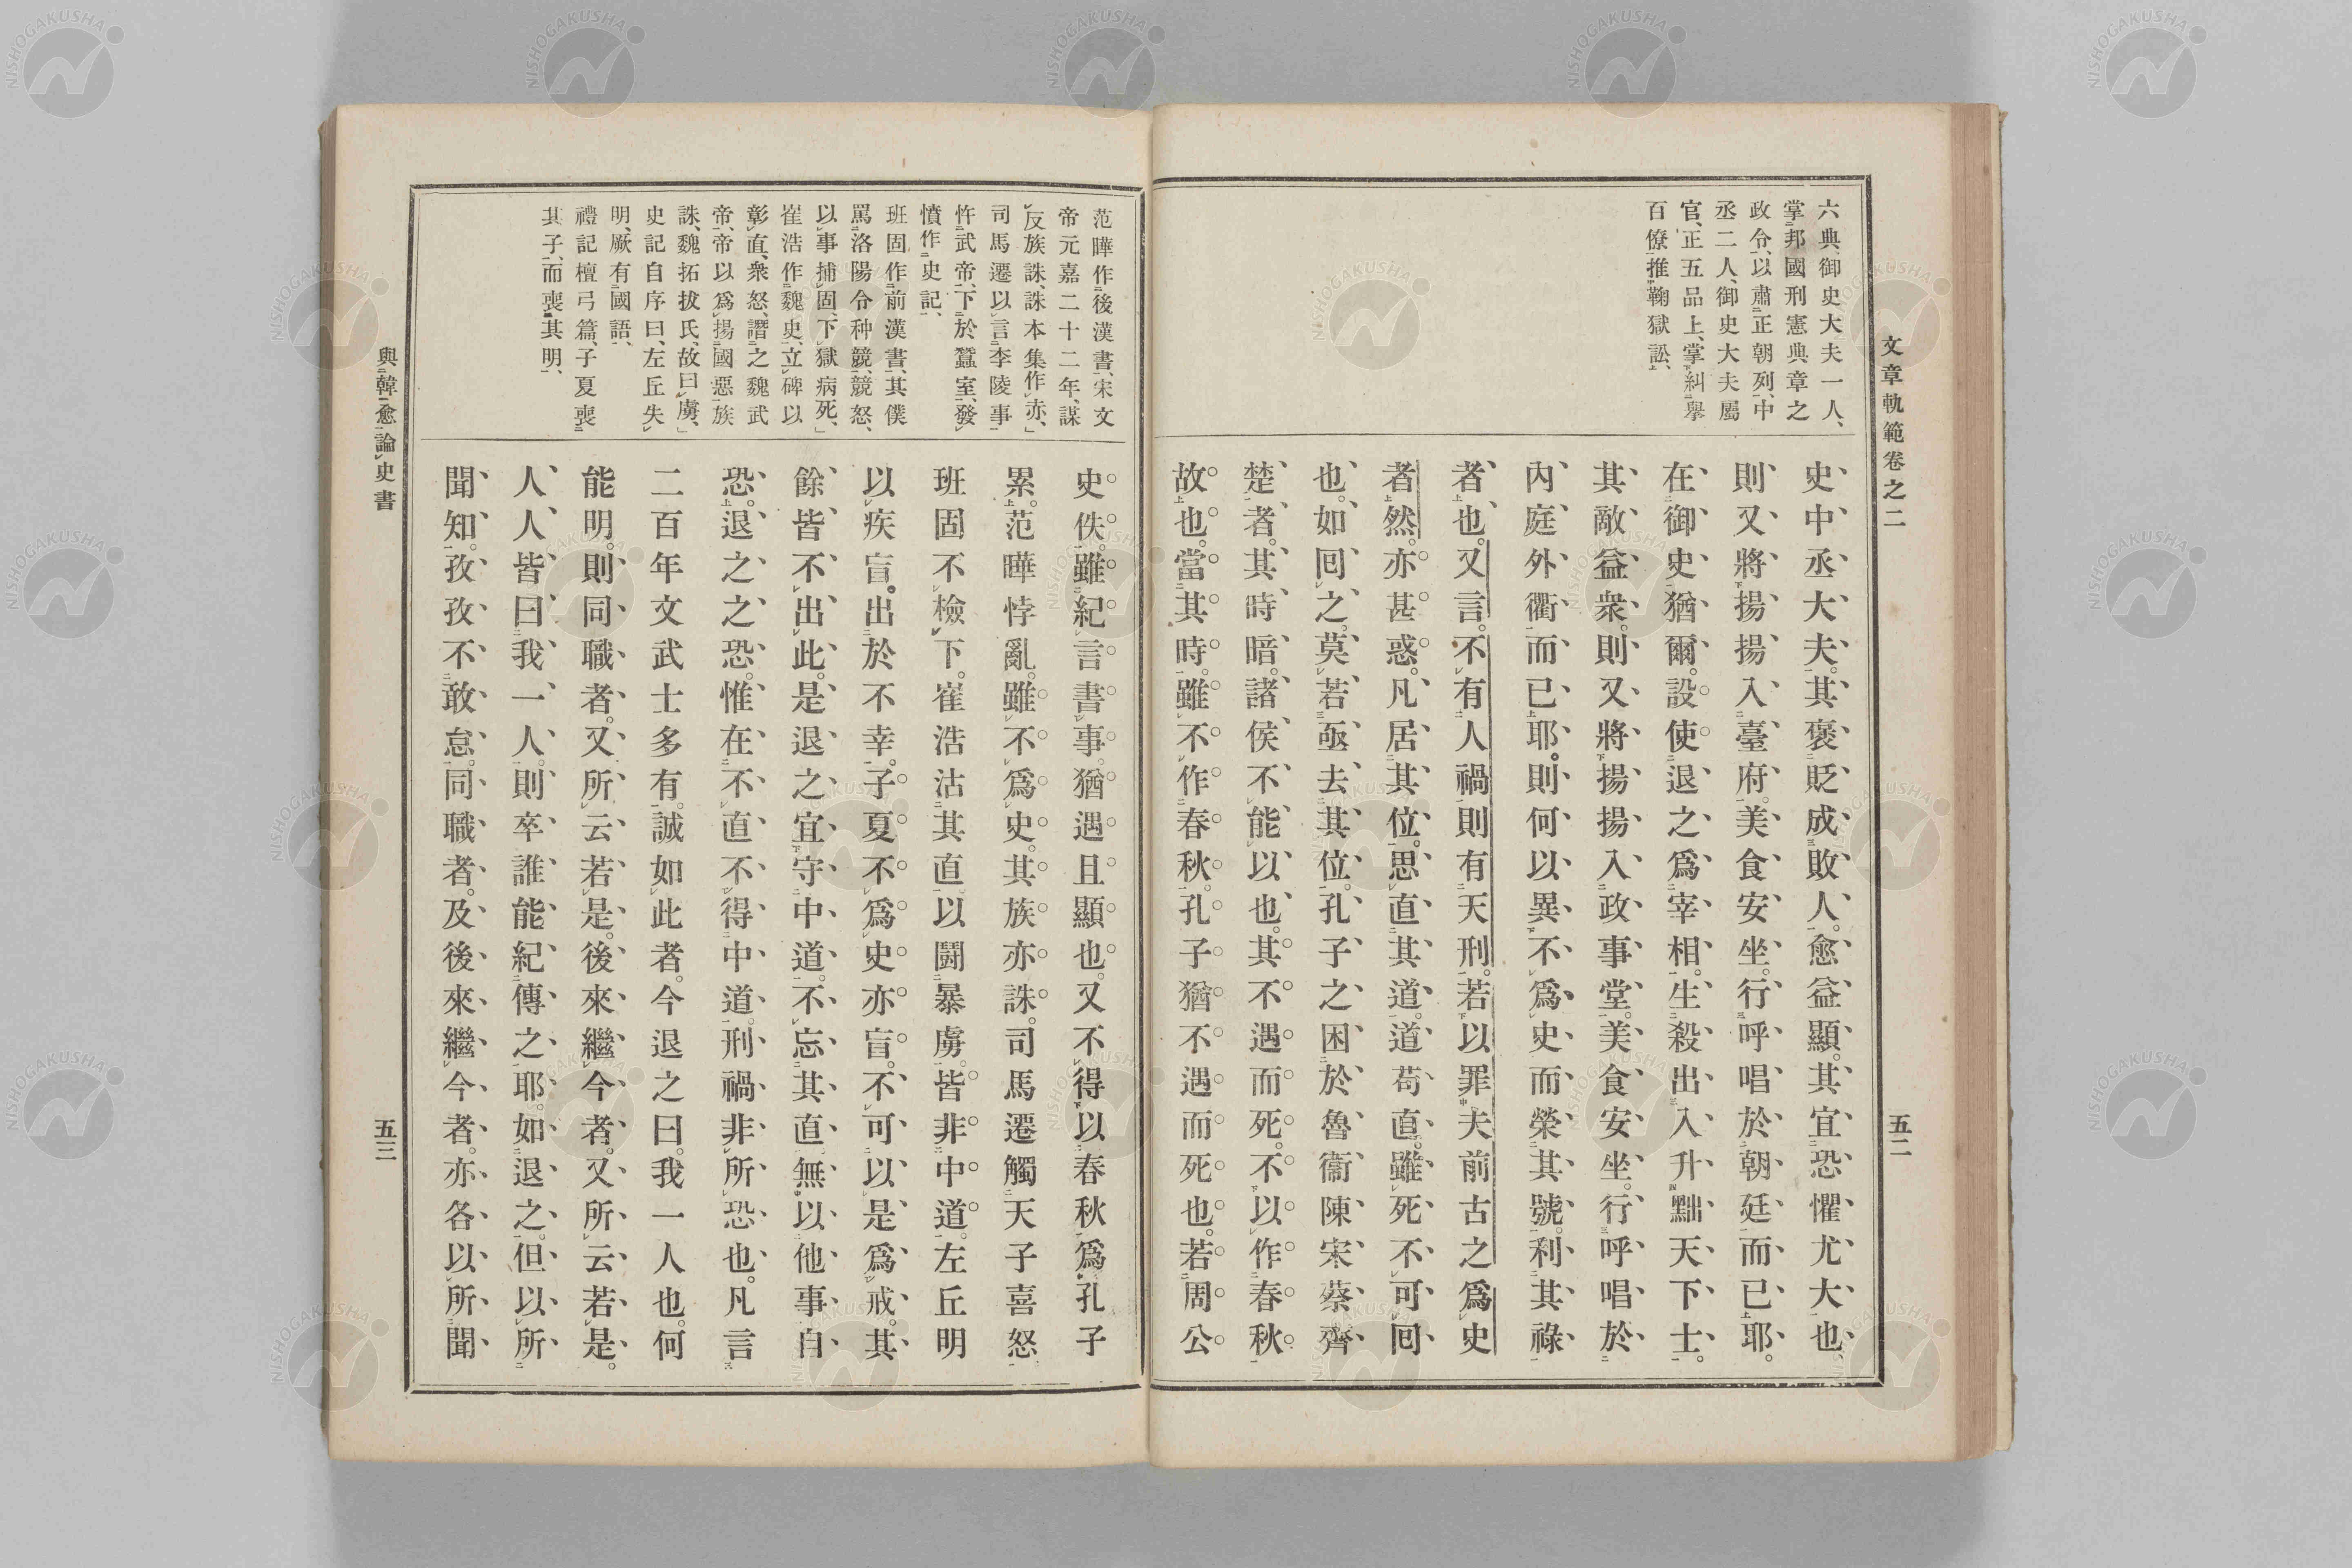 文章軌範卷之二
五二
六典、御史大夫一人、
掌邦國刑憲典章之
政令、以肅正朝列、中
丞二人、御史大夫屬
官、正五品上、掌糾擧
百僚推鞠獄訟、
史中丞大夫。其褒貶成敗人。愈益顯。其宜恐懼尤大也、
則又將揚揚入臺府。美食安坐。行呼唱於朝廷而已耶。
在御史猶爾。設使退之爲宰相。生殺出入升黜天下士。
其敵益衆。則又將揚揚入政事堂。美食安坐。行呼唱於
內庭外衢而已耶。則何以異不爲史而榮其號。利其祿
者也。又言。不有人禍則有天刑。若以罪夫前古之爲史
者然。亦甚惑。凡居其位。思直其道。道苟直。雖死不可回
也。如回之。莫若亟去其位。孔子之困於魯衞陳宋蔡齊
楚者。其時暗。諸侯不能以也。其不遇而死。不以作春秋
故也。當其時。雖不作春秋。孔子猶不遇而死也。若周公
范曄作後漢書、宋文
帝元嘉二十二年、謀
反族誅、誅本集作赤、」
司馬遷以言李陵事
忤武帝、下於蠶室、發
憤作史記、
班固作前漢書、其僕
罵洛陽令种競、競怒、
以事捕固、下獄病死、」
崔浩作魏史、立碑以
彰直、衆怒、譖之魏武
帝、帝以爲揚國惡族
誅、魏拓拔氏、故曰虜、」
史記自序曰、左丘失
明、厥有國語、
禮記檀弓篇、子夏喪
其子、而喪其明、
史佚。雖紀言書事。猶遇且顯也。又不得以春秋爲孔子
累。范曄悖亂。雖不爲史。其族亦誅。司馬遷觸天子喜怒
班固不檢下。崔浩沽其直以鬪暴虜。皆非中道。左丘明
以疾盲。出於不幸。子夏不爲史亦盲。不可以是爲戒。其
餘皆不出此。是退之宜守中道。不忘其直。無以他事自
恐。退之之恐。惟在不直不得中道。刑禍非所恐也。凡言
二百年文武士多有。誠如此者。今退之曰。我一人也。何
能明。則同職者。又所云若是。後來繼今者。又所云若是。
人人皆曰我一人。則卒誰能紀傳之耶。如退之。但以所
聞知。孜孜不敢怠。同職者。及後來繼今者。亦各以所聞
與韓愈論史書
五三